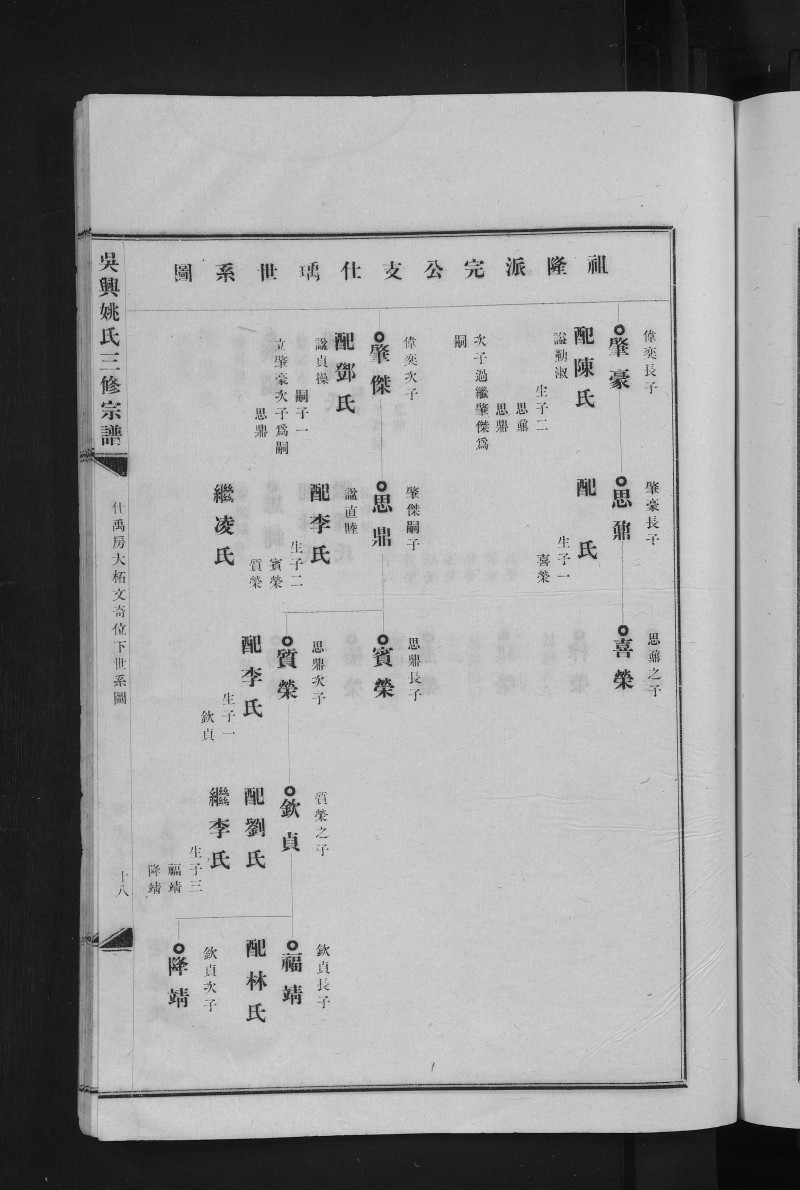 祖隆派完公支仕瑀世系圖
偉奕長子
肇豪
配陳氏
諡勤淑
生子二
思鼐
思鼎
次子過繼肇傑為
嗣
偉奕次子
肇傑
配鄧氏
諡貞操
嗣子一
立肇豪次子爲嗣
思鼎
肇豪長子
思鼐
配 氏
生子一
喜榮
肇傑嗣子
思鼎
諡直睦
配李氏
生子二
賓榮
質榮
繼凌氏
思鼐之子
喜榮
思鼎長子
賓榮
思鼎次子
質榮
配李氏
生子一
欽貞
質榮之子
欽貞
配劉氏
繼李氏
生子三
福靖
降靖
欽貞長子
福靖
配林氏
欽貞次子
降靖
吳興姚氏三修宗譜
仕禹房大柘文奇位下世系圖
十八